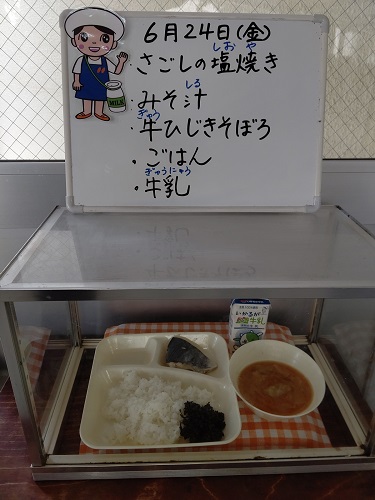 6月24日(金)
しお や
さごしの塩焼き
しる
・みそ汁
ぎゅう
・牛ひじきそぼろ
・ごはん
ぎゅうにゅう
・牛乳
MILK
いかるが
牛乳